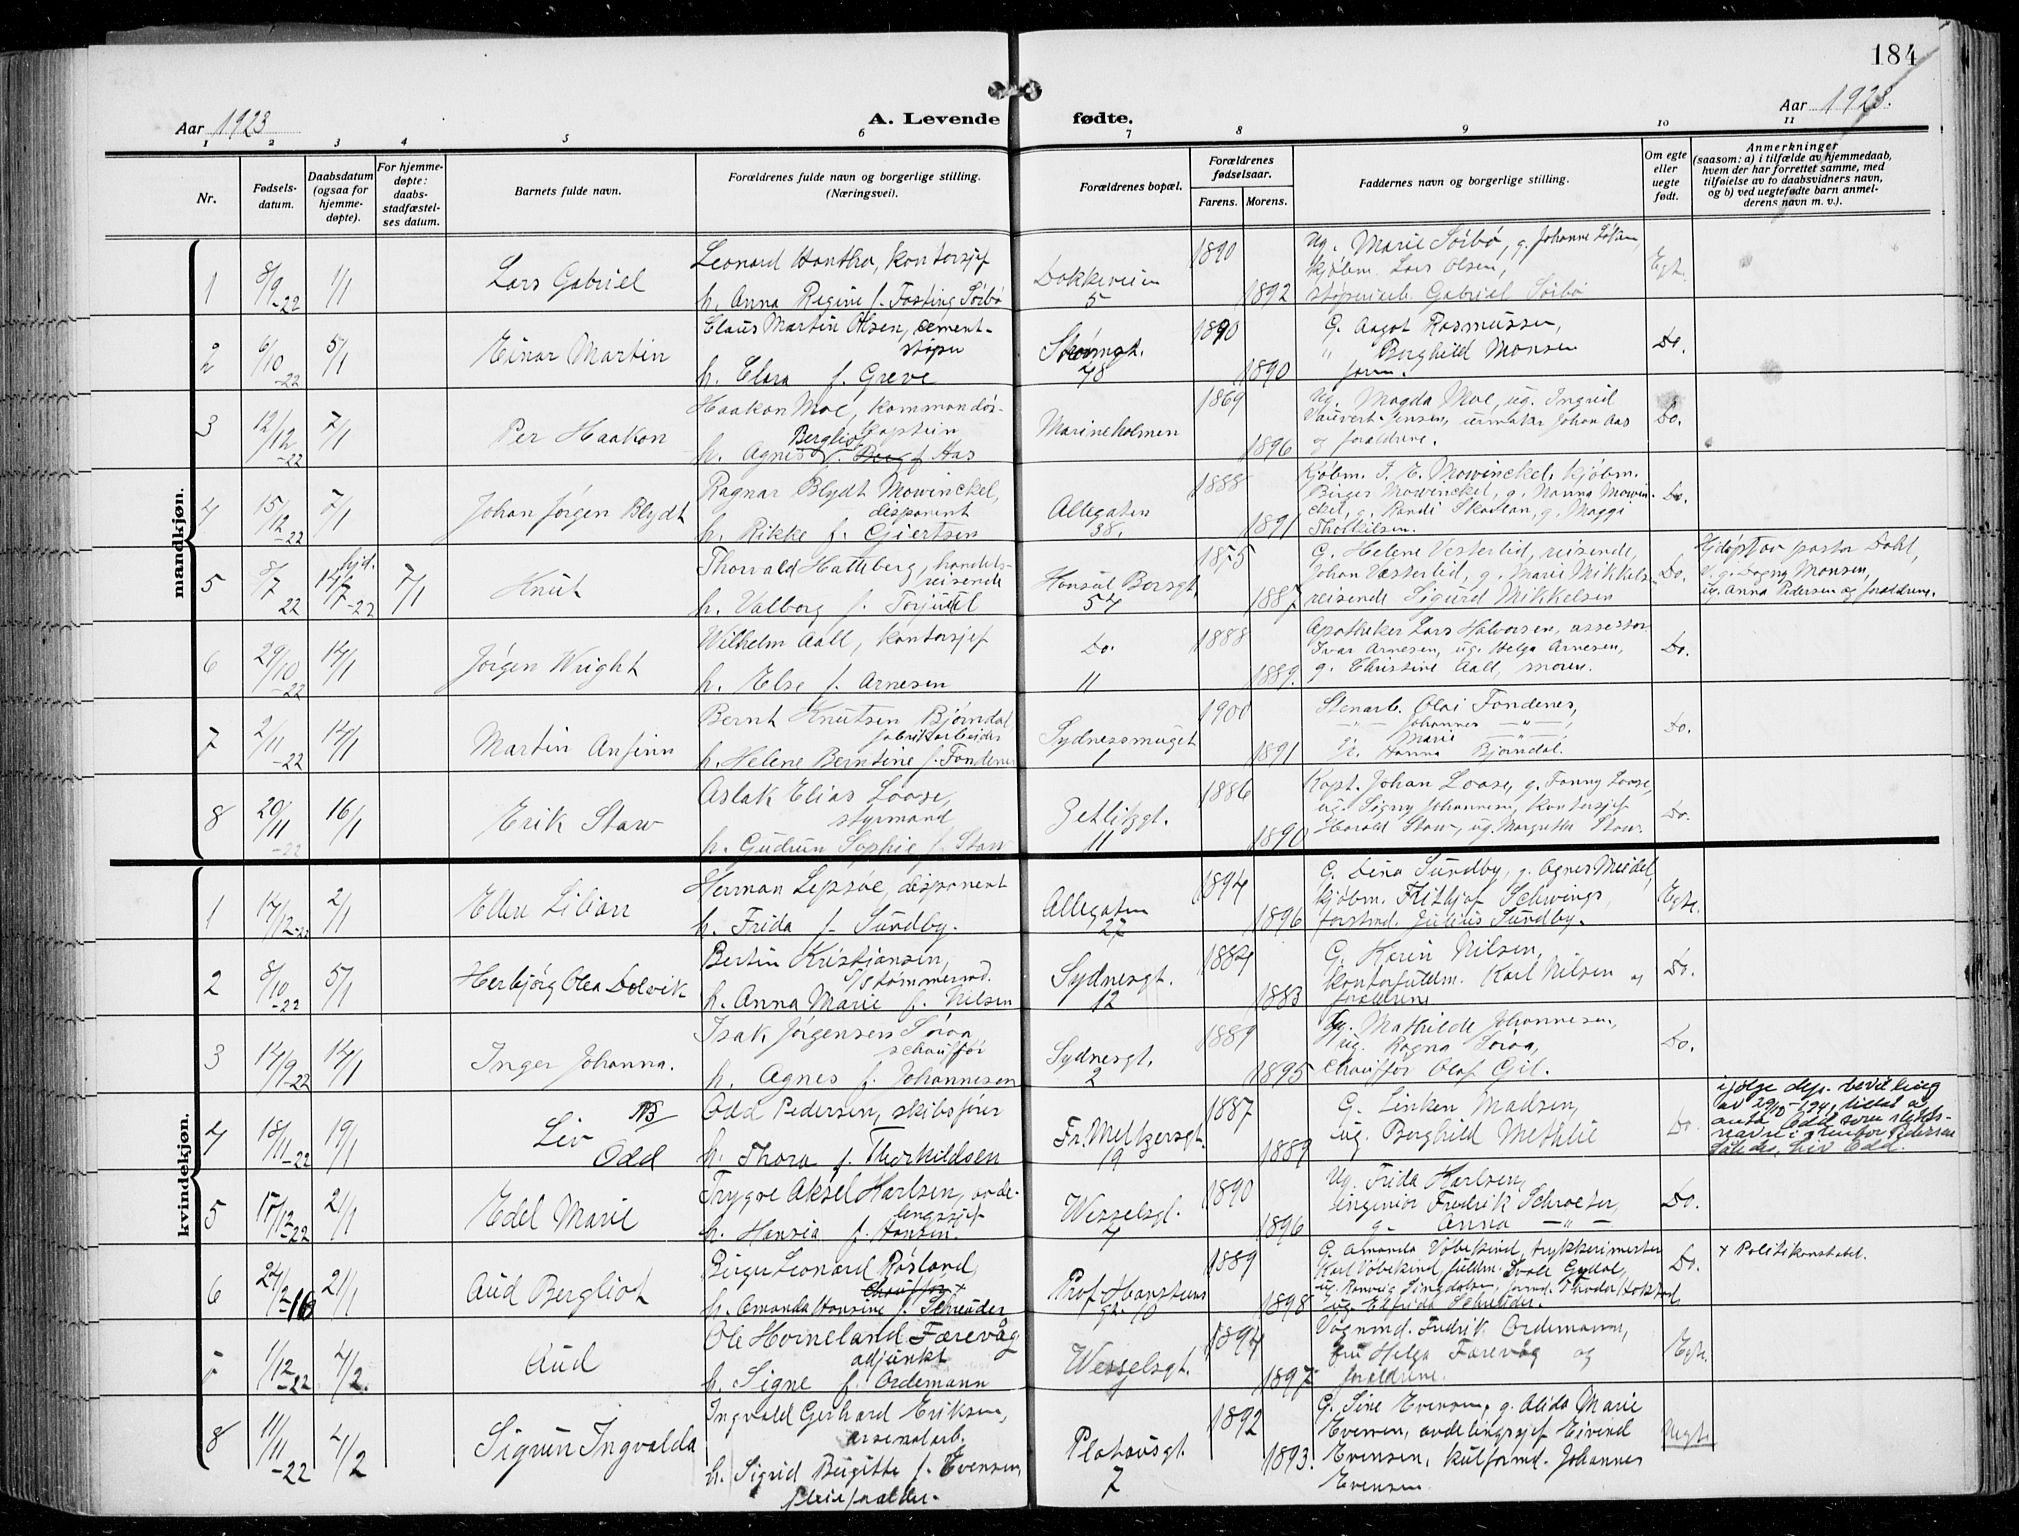 184
Aar 1923
A. Levende fødte.
Aar 1923.
1 2 3 4 5 6 7 8 9 10 11
Nr.
Fødsels-
datum.
Daabsdatum
(ogsaa for
hjemme-
døpte).
For hjemme-
døpte:
daabs-
stadfæstel-
ses datum.
Barnets fulde navn.
Forældrenes fulde navn og borgerlige stilling.
(Næringsvei).
Forældrenes bopæl.
Forældrenes
fødselsaar.
Farens. Morens.
Faddernes navn og borgerlige stilling.
Om egte
eller
uegte
født.
Anmerkninger
(saasom: a) i tilfælde av hjemmedaab,
hvem der har forrettet samme, med
tilføielse av to daabsvidners navn,
og b) ved uegtefødte barn anmel-
derens navn m. v.).
mandkjøn.
1 8/9-22 1/1 Lars Gabriel
Leonard Hantho, kontorsjef
h. Anna Regine f. Fasting Sörbö
Dokkeveien
5
1890
1892
Ug. Marie Sörbö, g. Johanne
kjöbm. Lars Olsen,
Gabriel Sörbö
Egte.
2 6/10-22 5/1 Einar Martin
Claus Martin Olsen, cement-
støper
h. Clara f. Greve
78
1890
1890
G. Aagot Rasmussen,
" Borghild Monsen
faren.
Do.
3 12/12-22 7/1 Per Haakon
Haakon Moe, kommandör-
kaptein
h. Agnes Bergliot f. Aas
Marineholmen
1869
1896
Ug. Magda Moe, ug. Ingrid
Vauvert-Jensen, urmaker Johan Aas
og forældrene.
Do.
4 15/12-22 7/1 Johan Jörgen Blydt
Ragnar Blydt Mowinckel,
disponent
h. Rikke f. Gjertsen
Allegaten
38.
1888
1891
Kjöbm. J. E. Mowinckel, kjöbm.
Birger Mowinckel, g. Nanna Mowin-
ckel, g. Randi Skadtan, g. Maggi
Thorkilsen.
Do.
5 8/7 22 hjd. 14/7-22 7/1 Knut
Thorvald Hatleberg, handels-
reisende
h. Valborg f. Torjusen
Konsul Börsgt.
54
1875
1887
G. Helene Vesterlid, reisende,
Johan Vesterlid, g. Marie Mikkels
reisende Sigurd Mikkelsen
Do.
Hjdöpt av pastor Dahl,
V. g. Dagny Monsen,
ug. Anna Pedersen og forældrene.
6 29/10-22 14/1 Jörgen Wright
Wilhelm Aall, kontorsjef
h. Else f. Arnesen
Do.
11
1888
1889.
Apotheker Lars Halvorsen, assessor
Ivar Arnesen, ug. Helga Arnesen,
g. Christine Aall, moren.
Do.
7 2/11-22 14/1 Martin Anfinn
Bernt Knutsen Björndal
fabrikarbeider
h. Helene Berntine f. Fondenes
Sydnessmuget
1
1900
1891
Stenarb. Olai Fondenes,
—"— Johannes —"—,
Marie —"—,
Hanna Björndal.
Do.
8 20/11-22 16/1 Erik Staw
Aslak Elias Loose,
styrmand
h. Gudrun Sophie f. Staw
Zetlitzgt.
11
1886
1890
Kapt. Johan Loose, g. Fanny Loose,
ug. Signy Johannesen, kontorsjef
Harald Staw, ug. Margrethe Staw.
Do.
kvindekjøn.
1 17/12-22 2/1 Ellen Lilian
Herman Lepsöe, disponent
h. Frida f. Sundby.
Allegaten
27
1894
1896
G. Dina Sundby, g. Agnes Meidel,
kjöbm. Fridtjof Schwings,
forstmd. Julius Sundby.
Egte.
2 8/10-22 5/1 Herbjörg Olea Dolvik
Bertin Kristjansen,
s/s tömmermd.
h. Anna Marie f. Nilsen
Sydnesgt.
12
1884
1883
G. Karin Nilsen,
kontorfuldm. Karl Nilsen og
forældrene
Do.
3 14/9-22 14/1 Inger Johanna.
Isak Jörgensen Söraa
schaufför
h. Agnes f. Johannesen
Sydnesgt.
2
1889
1895
Ug. Mathilde Johannesen,
ug. Ragna Söraa,
Chaufför Olaf Gil.
Do.
4 18/11-22 19/1 Liv NB
Odd
Odd Pedersen, skibsförer
h. Thora f. Thorkildsen
Fr. Meltzersgt.
19
1887
1889
G. Linken Madsen,
ug. Borghild Methlie
Do.
ifölge dep. bevilling
av 29/10-1941 tillat å
anta Odd som slekts-
navn i stedet for Pedersen
således, Liv Odd.
5 17/12-22 21/1 Edel Marie
Trygve Aksel Karlsen, avde-
lingssjef
h. Hansia f. Hansen.
Wesselsgt.
7
1890
1896
Ug. Frida Karlsen,
ingeniör Fredrik Schroeter,
g. Anna —"—
Do.
6 24/2-16 21/1 Aud Bergliot
Birger Leonard Røsland,
Chauffør +
h. Amanda Hansine f. Schreuder
Prof. Hansteens
gt. 70
1889
1898
G. Amanda Vöbekind, trykkerimester
Karl Vöbekind, fuldm.
ug. Elfrida Schreuder.
Do.
+ Politikonstabel.
1/12-22 4/2. Aud
Ole Hvineland Færevåg
adjunkt
h. Signe f. Ordemann
Wesselsgt.
1894
1897
Vognmd. Fredrik Ordemann,
fru Helga Færevåg og
forældrene.
Egte.
8 11/11-22 4/2 Sigrun Ingvalda
Ingvald Gerhard Eriksen,
arsenalarb.
h. Sigrid Birgitte f. Evensen,
pleieforælder.
Platousgt.
7
1892
1893.
G. Sine Evensen, g. Alida Marie
Evensen, avdelingssjef Eivind
Evensen, kulformd. Johannes
Evensen
Uegte